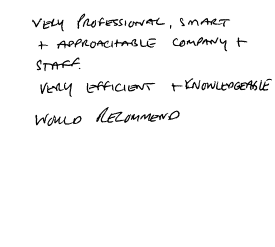 VERY PROFESSIONAL, SMART
+ APPROACHABLE COMPANY +
STAFF.
VERY EFFICIENT + KNOWLEDGEABLE
WOULD RECOMMEND